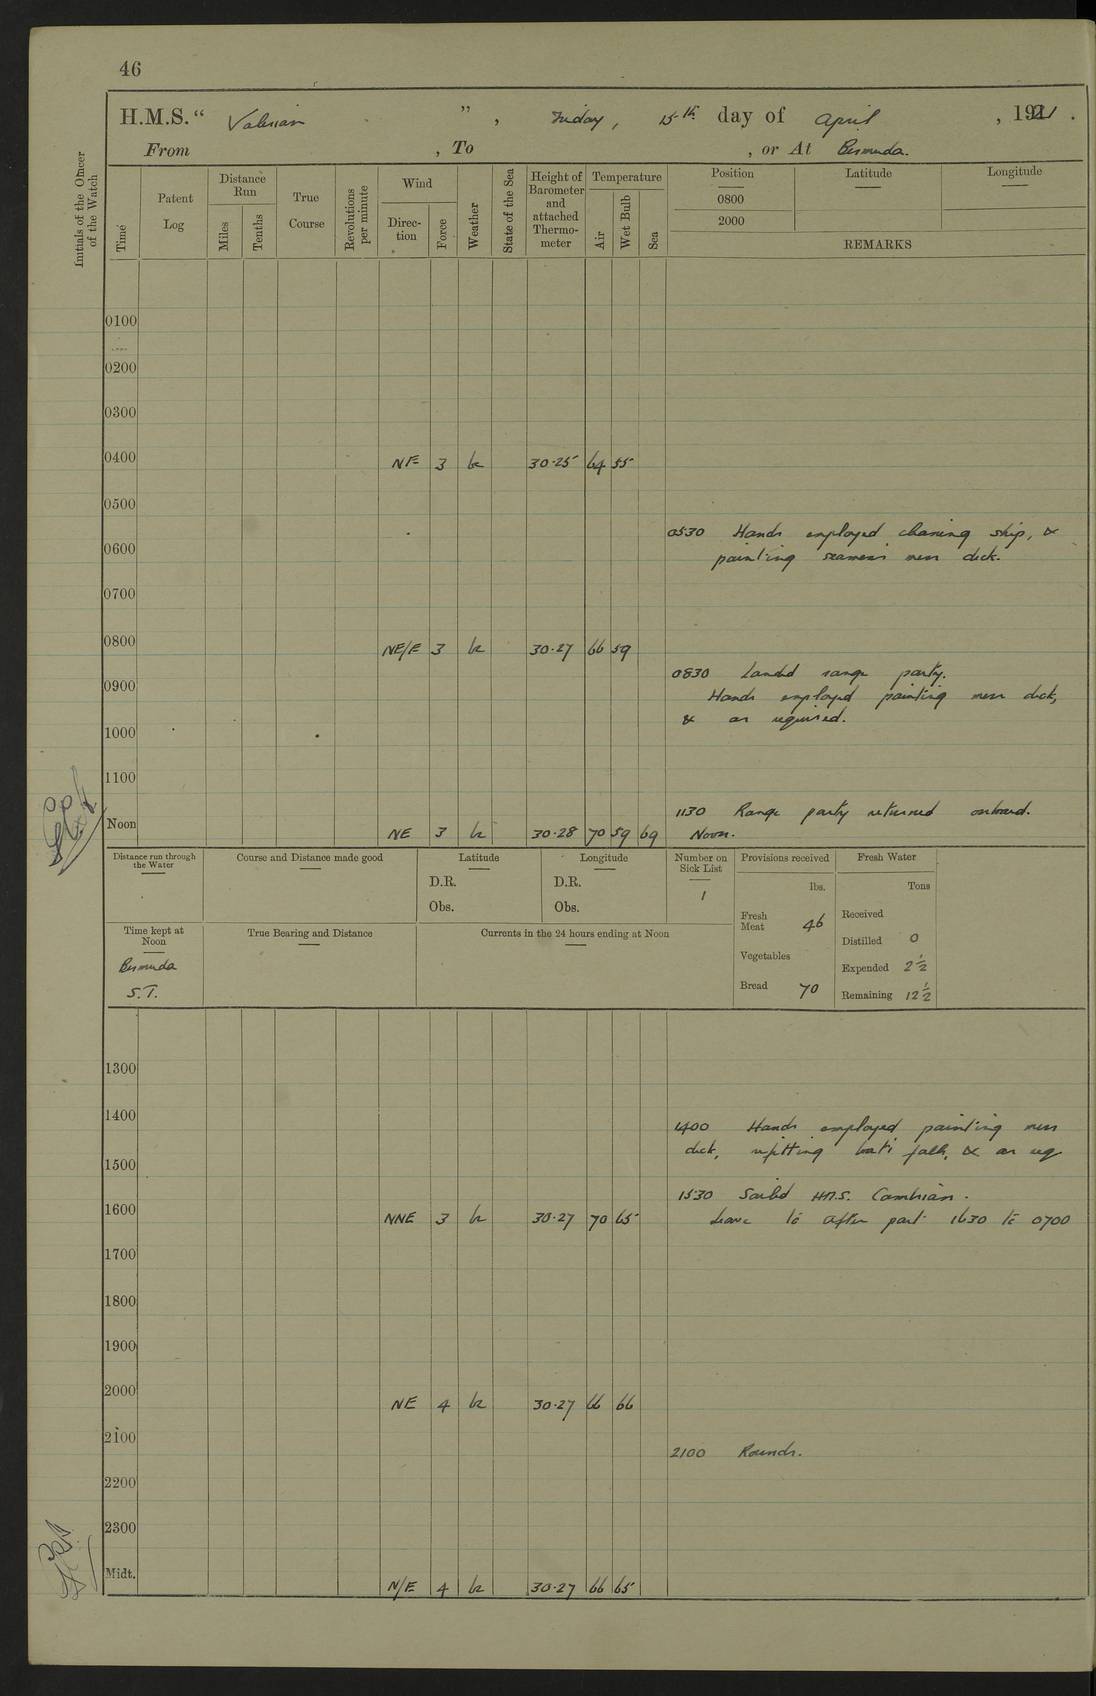 46
H.M.S. “ Valerian ” , Friday, 15th day of April , 1921 .
From , To , or At Bermuda.
Initials of the Officer of the Watch
Time
Patent Log
Distance Run
Miles
Tenths
True Course
Revolutions per minute
Wind
Direction
Force
Weather
State of the Sea
Height of Barometer and attached Thermometer
Temperature
Air
Wet Bulb
Sea
Position
Latitude
Longitude
0800
2000
REMARKS
0100
0200
0300
0400 NE 3 bc 30·25 64 55
0500
0530 Hands employed cleaning ship, &
0600 painting seamens mess deck.
0700
0800 NE/E 3 bc 30·27 66 59
0830 Landed range party.
0900 Hands employed painting mess deck,
& as required.
1000
1100
1130 Range party returned onboard.
Noon NE 3 bc 30·28 70 59 69 Noon.
Distance run through the Water
Course and Distance made good
Latitude
D.R.
Obs.
Longitude
D.R.
Obs.
Number on Sick List
1
Provisions received
lbs.
Fresh Meat 46
Vegetables
Bread 70
Fresh Water
Tons
Received
Distilled 0
Expended 2½
Remaining 12½
Time kept at Noon
Bermuda
S.T.
True Bearing and Distance
Currents in the 24 hours ending at Noon
1300
1400 1400 Hands employed painting mess
deck, refitting boats falls, & as req
1500
1530 Sailed H.M.S. Cambrian.
1600 NNE 3 bc 30·27 70 65 Leave to after part 1630 to 0700
1700
1800
1900
2000 NE 4 bc 30·27 66 66
2100 2100 Rounds.
2200
2300
Midt. N/E 4 bc 30·27 66 65